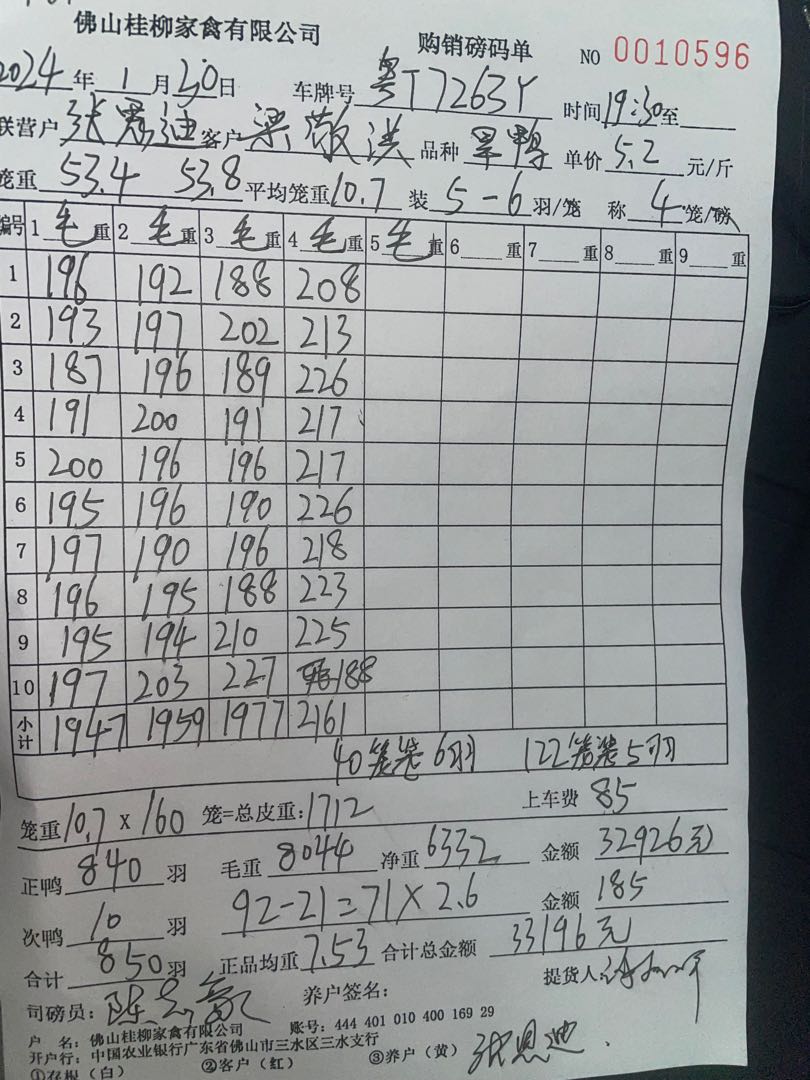 佛山桂柳家禽有限公司 购销磅码单 NO 0010596
2024年1月30日 车牌号 粤T7263Y 时间19:30至
联营户 张恩迪 客户 梁敬洪 品种 旱鸭 单价5.2元/斤
笼重 53.4 53.8 平均笼重10.7 装 5-6 羽/笼 称 4 笼/磅
编号 1 毛 重 2 毛 重 3 毛 重 4 毛 重 5 毛 重 6 重 7 重 8 重 9 重
1 196 192 188 208
2 193 197 202 213
3 187 196 189 226
4 191 200 191 217
5 200 196 196 217
6 195 196 190 226
7 197 190 196 218
8 196 195 188 223
9 195 194 210 225
10 197 203 227 188
小计 1947 1959 1977 2161
40笼装6羽 122笼装5羽
笼重10.7 x 160 笼=总皮重:1712 上车费 85
正鸭 840 羽 毛重 8044 净重 6332 金额 32926元
次鸭 10 羽 92-21=71×2.6 金额 185
合计 850 羽 正品均重 7.53 合计总金额 33196元
司磅员: 养户签名: 提货人:
户 名: 佛山桂柳家禽有限公司 账号: 444 401 010 400 169 29
开户行: 中国农业银行广东省佛山市三水区三水支行
①存根(白) ②客户(红) ③养户(黄) 张恩迪